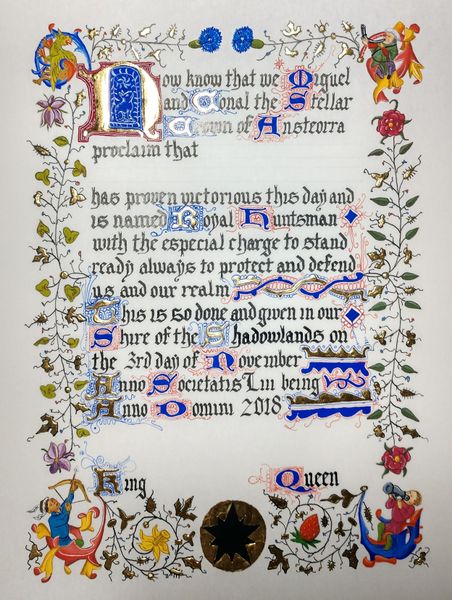 Now know that we Miguel
and Conal the Stellar
Crown of Ansteorra
proclaim that
has proven victorious this day and
is named Royal Huntsman
with the especial charge to stand
ready always to protect and defend
us and our realm
This is so done and given in our
Shire of the Shadowlands on
the 3rd day of November
Anno Societatis Liii being
Anno Domini 2018
King Queen